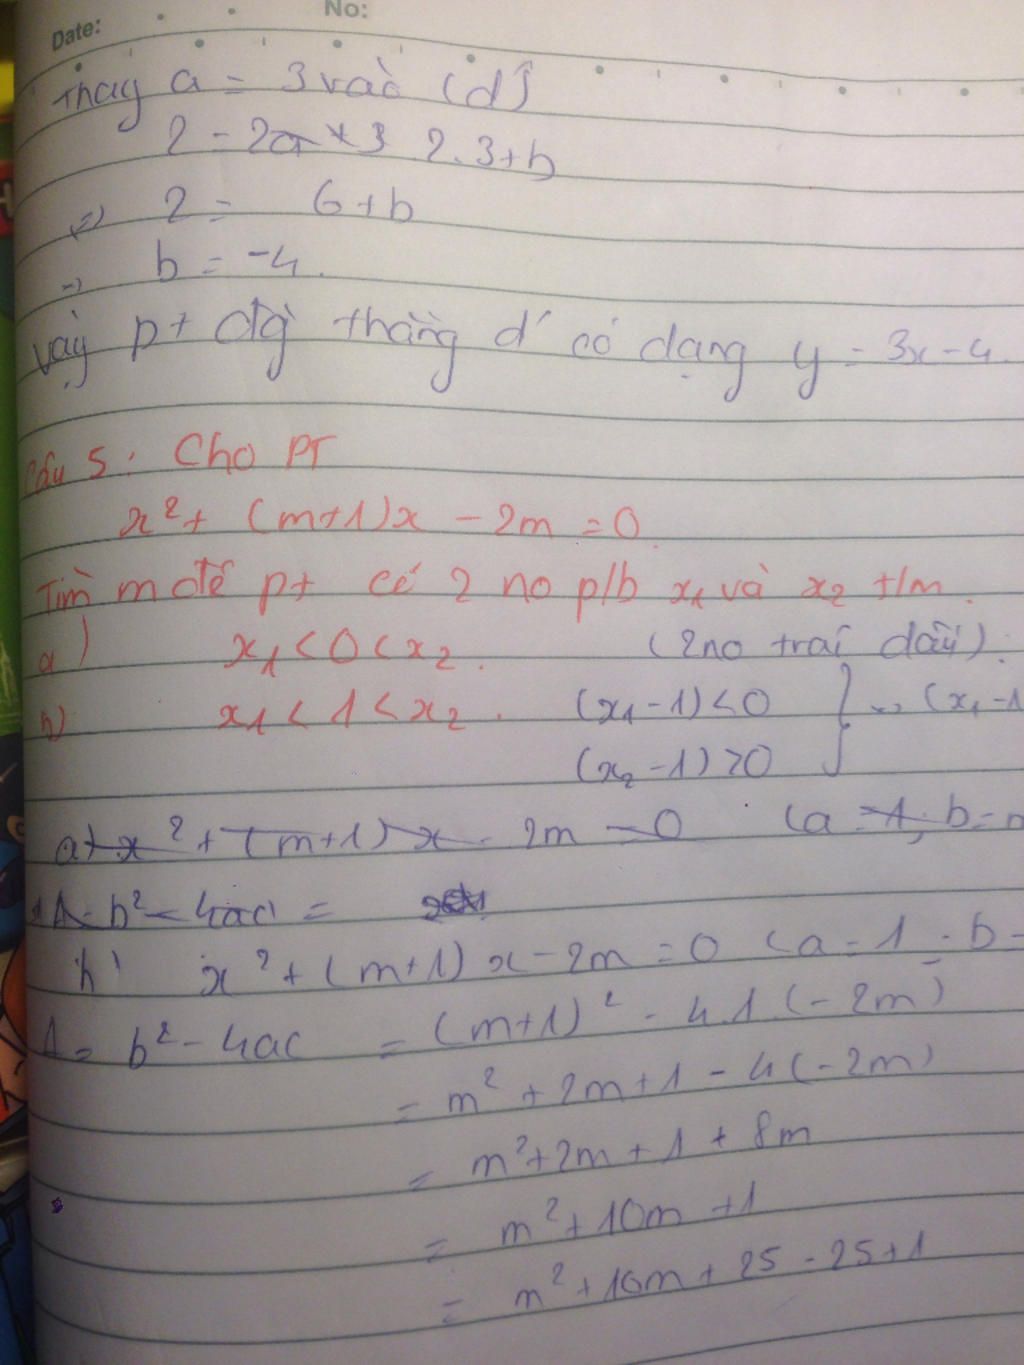 Date: No:
Thay a = 3 vào (d')
2 = 2a + 3 2.3+b
=> 2 = 6+b
=> b = -4.
vậy pt đg thẳng d' có dạng y = 3x-4.
Câu 5: Cho PT
x² + (m+1)x - 2m = 0.
Tìm m để pt có 2 no p/b x₁ và x₂ t/m.
a) x₁ < 0 < x₂. (2 no trái dấu).
b) x₁ < 1 < x₂. (x₁ - 1) < 0 } => (x₁ - 1
(x₂ - 1) > 0
a) x² + (m+1)x - 2m = 0 (a = 1; b = m
Δ = b² - 4ac =
b) x² + (m+1)x - 2m = 0 (a = 1; b =
Δ = b² - 4ac = (m+1)² - 4.1.(-2m)
= m² + 2m + 1 - 4(-2m)
= m² + 2m + 1 + 8m
= m² + 10m + 1
= m² + 10m + 25 - 25 + 1